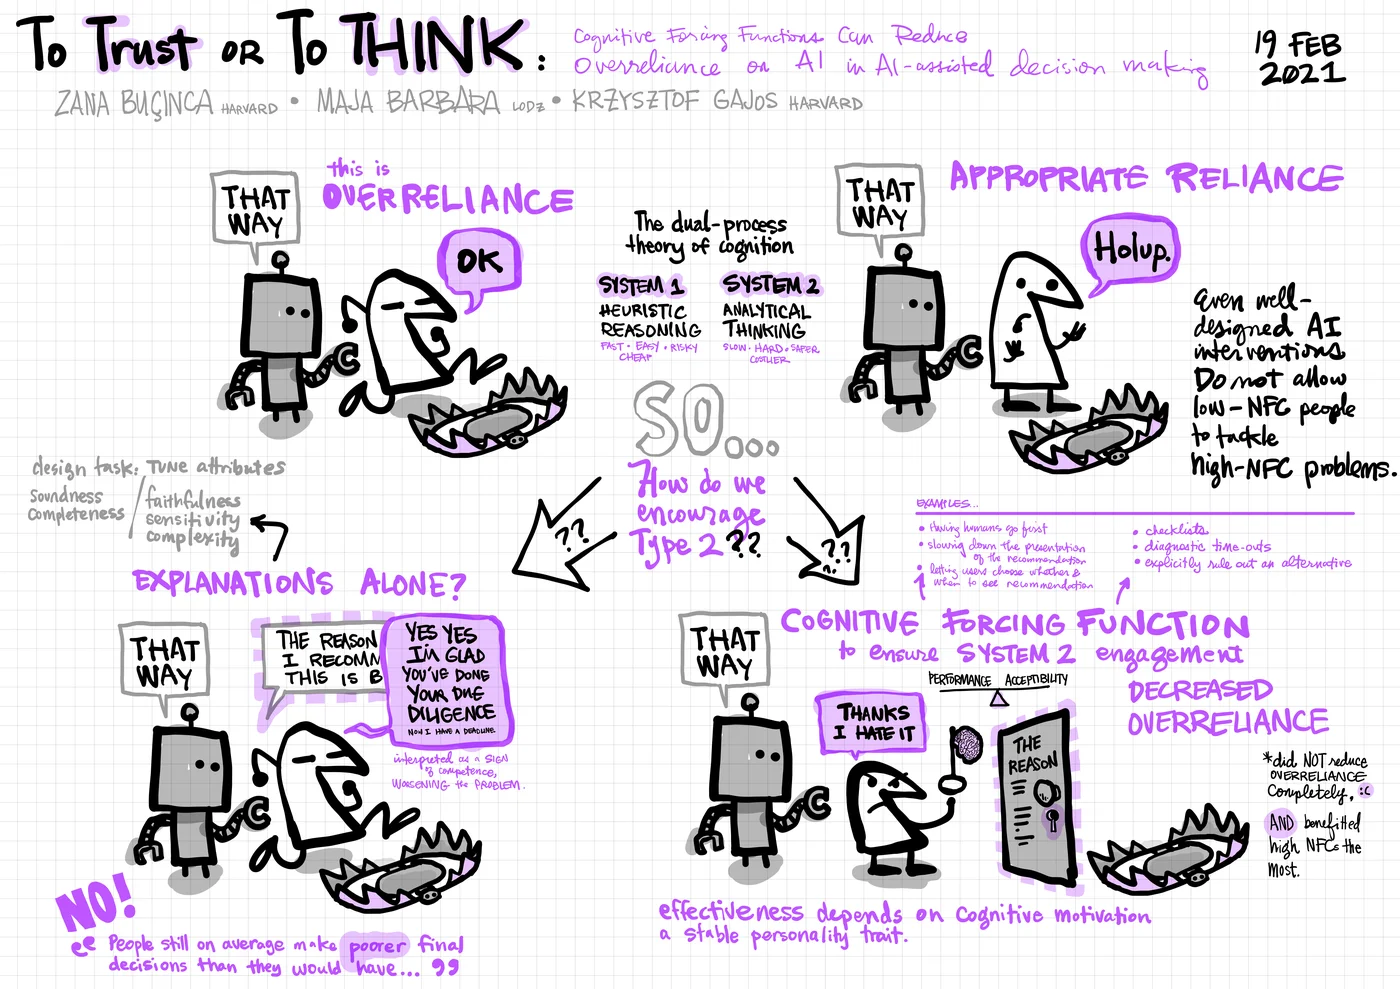 To Trust OR To THINK:
Cognitive Forcing Functions Can Reduce
Overreliance on AI in AI-assisted decision making
19 FEB
2021
ZANA BUÇINCA HARVARD • MAJA BARBARA LODZ • KRZYSZTOF GAJOS HARVARD
THAT
WAY
this is
OVERRELIANCE
OK
The dual-process
theory of cognition
SYSTEM 1
HEURISTIC
REASONING
FAST • EASY • RISKY
CHEAP
SYSTEM 2
ANALYTICAL
THINKING
SLOW • HARD • SAFER
COSTLIER
THAT
WAY
APPROPRIATE RELIANCE
Holup.
Even well-
designed AI
interventions
Do not allow
low-NFC people
to tackle
high-NFC problems.
SO...
How do we
encourage
Type 2 ??
??
??
design task: TUNE attributes
Soundness
Completeness
faithfulness
sensitivity
complexity
EXPLANATIONS ALONE?
THAT
WAY
THE REASON
I RECOMM
THIS IS B
YES YES
I'M GLAD
YOU'VE DONE
YOUR DUE
DILIGENCE
NOW I HAVE A DEADLINE.
interpreted as a SIGN
of competence,
WORSENING the PROBLEM.
NO!
"People still on average make poorer final
decisions than they would have..."
EXAMPLES...
• Having humans go first
• slowing down the presentation
of the recommendation
• letting users choose whether &
when to see recommendation
• checklists
• diagnostic time-outs
• explicitly rule out an alternative
COGNITIVE FORCING FUNCTION
to ensure SYSTEM 2 engagement
THAT
WAY
PERFORMANCE ACCEPTIBILITY
THANKS
I HATE IT
THE
REASON
DECREASED
OVERRELIANCE
*did NOT reduce
OVERRELIANCE
Completely. :C
AND benefitted
high NFCs the
most.
effectiveness depends on Cognitive motivation
a stable personality trait.